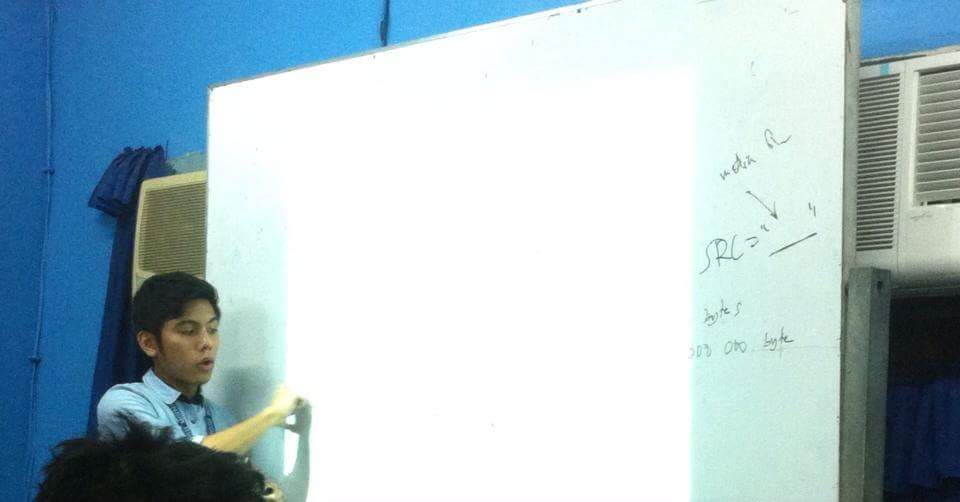 media
SRC="___"
bytes
000 000 byte